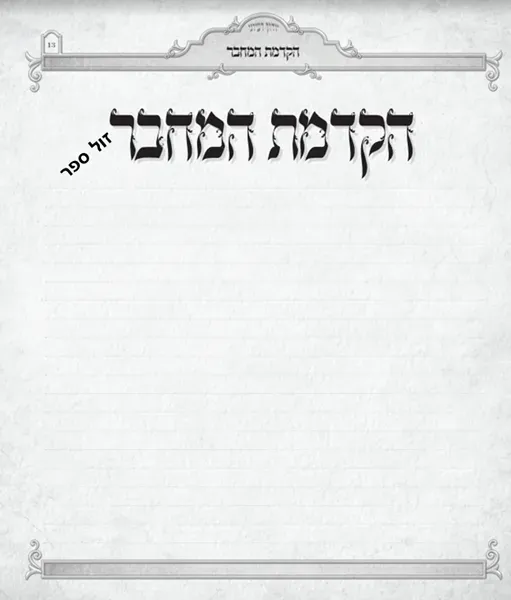 13
הקדמת המחבר
הקדמת המחבר
זול ספר